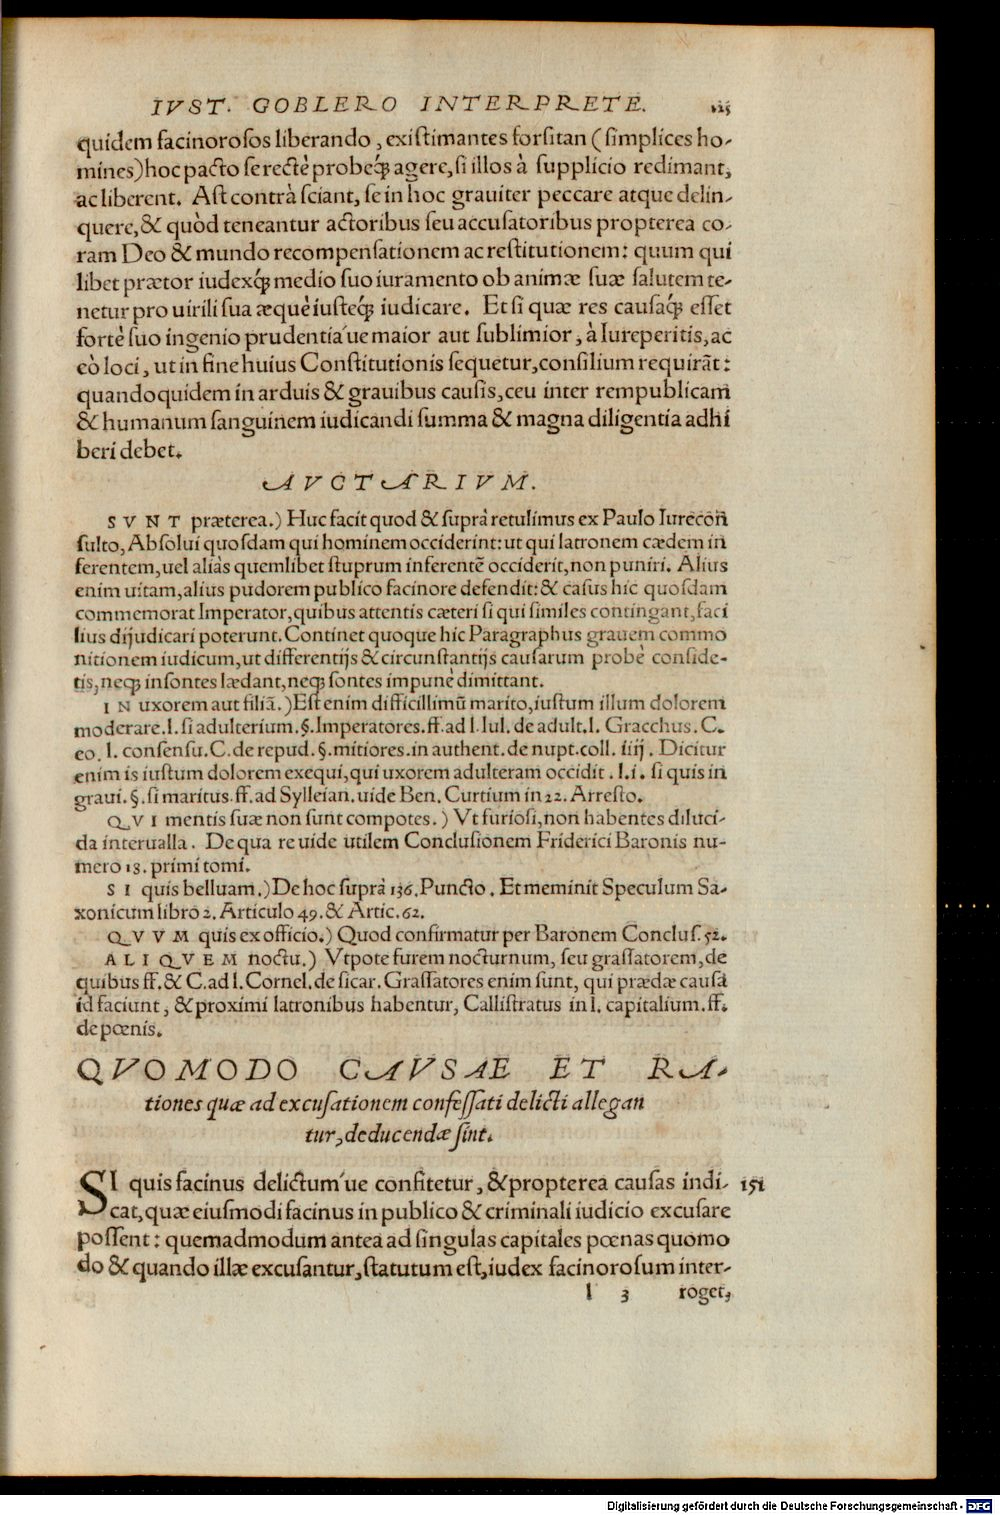 IVST. GOBLERO INTERPRETE. 125
quidem facinorosos liberando, existimantes forsitan (simplices ho-
mines) hoc pacto se rectè probeq́ʒ agere, si illos à supplicio redimant,
ac liberent. Ast contrà sciant, se in hoc grauiter peccare atque delin-
quere, & quòd teneantur actoribus seu accusatoribus propterea co-
ram Deo & mundo recompensationem ac restitutionem: quum qui
libet prætor iudexq́ʒ medio suo iuramento ob animæ suæ salutem te-
netur pro uirili sua æquè iusteq́ʒ iudicare. Et si quæ res causaq́ʒ esset
fortè suo ingenio prudentia´ue maior aut sublimior, à Iureperitis, ac
eò loci, ut in fine huius Constitutionis sequetur, consilium requirãt:
quandoquidem in arduis & grauibus causis, ceu inter rempublicam
& humanum sanguinem iudicandi summa & magna diligentia adhi
beri debet.
AVCTARIVM.
SVNT præterea.) Huc facit quod & suprà retulimus ex Paulo Iurecon
sulto, Absolui quosdam qui hominem occiderint: ut qui latronem cædem in
ferentem, uel aliàs quemlibet stuprum inferentẽ occiderit, non puniri. Alius
enim uitam, alius pudorem publico facinore defendit: & casus hic quosdam
commemorat Imperator, quibus attentis cæteri si qui similes contingant, faci
lius dijudicari poterunt. Continet quoque hic Paragraphus grauem commo
nitionem iudicum, ut differentijs & circunstantijs causarum probè conside-
tis, neqʒ insontes lædant, neqʒ sontes impunè dimittant.
IN uxorem aut filiã.) Est enim difficillimũ marito, iustum illum dolorem
moderare. l. si adulterium. §. Imperatores. ff. ad l. Iul. de adult. l. Gracchus. C.
eo. l. consensu. C. de repud. §. mitiores. in authent. de nupt. coll. iiij. Dicitur
enim is iustum dolorem exequi, qui uxorem adulteram occidit. l. i. si quis in
graui. §. si maritus. ff. ad Sylleian. uide Ben. Curtium in 22. Arresto.
QVI mentis suæ non sunt compotes.) Vt furiosi, non habentes diluci-
da interualla. De qua re uide utilem Conclusionem Friderici Baronis nu-
mero 18. primi tomi.
SI quis belluam.) De hoc suprà 136. Puncto. Et meminit Speculum Sa-
xonicum libro 2. Articulo 49. & Artic. 62.
QVVM quis ex officio.) Quod confirmatur per Baronem Conclus. 52.
ALIQVEM noctu.) Vtpote furem nocturnum, seu grassatorem, de
quibus ff. & C. ad l. Cornel. de sicar. Grassatores enim sunt, qui prædæ causa
id faciunt, & proximi latronibus habentur, Callistratus in l. capitalium. ff.
de pœnis.
QVOMODO CAVSAE ET RA-
tiones quæ ad excusationem confessati delicti allegan
tur, deducendæ sint.
SI quis facinus delictum´ue confitetur, & propterea causas indi- 151
cat, quæ eiusmodi facinus in publico & criminali iudicio excusare
possent: quemadmodum antea ad singulas capitales pœnas quomo
do & quando illæ excusantur, statutum est, iudex facinorosum inter-
l 3 roget,
Digitalisierung gefördert durch die Deutsche Forschungsgemeinschaft - DFG